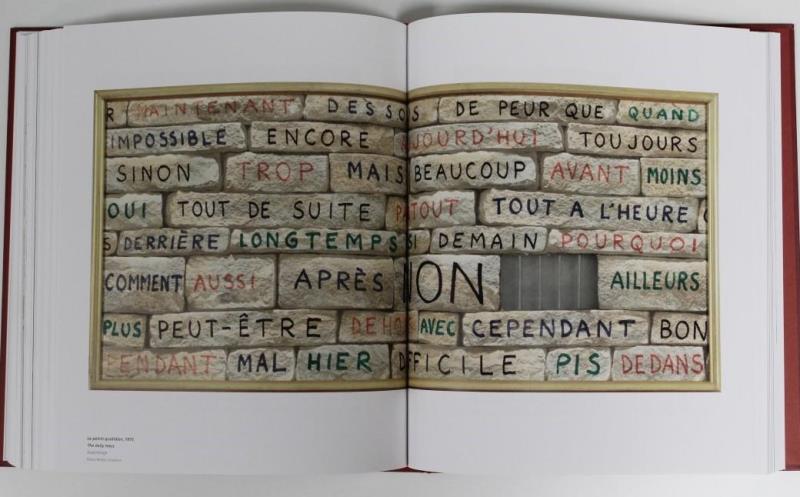 R MAINTENANT DESSO S DE PEUR QUE QUAND
IMPOSSIBLE ENCORE AUJOURD'HUI TOUJOURS
SINON TROP MAIS BEAUCOUP AVANT MOINS
OUI TOUT DE SUITE PATOUT TOUT A L'HEURE
S DERRIÈRE LONGTEMPS SI DEMAIN POURQUOI
COMMENT AUSSI APRÈS NON AILLEURS
PLUS PEUT-ÊTRE DEHO AVEC CEPENDANT BON
PENDANT MAL HIER DFFICILE PIS DEDANS
The daily news